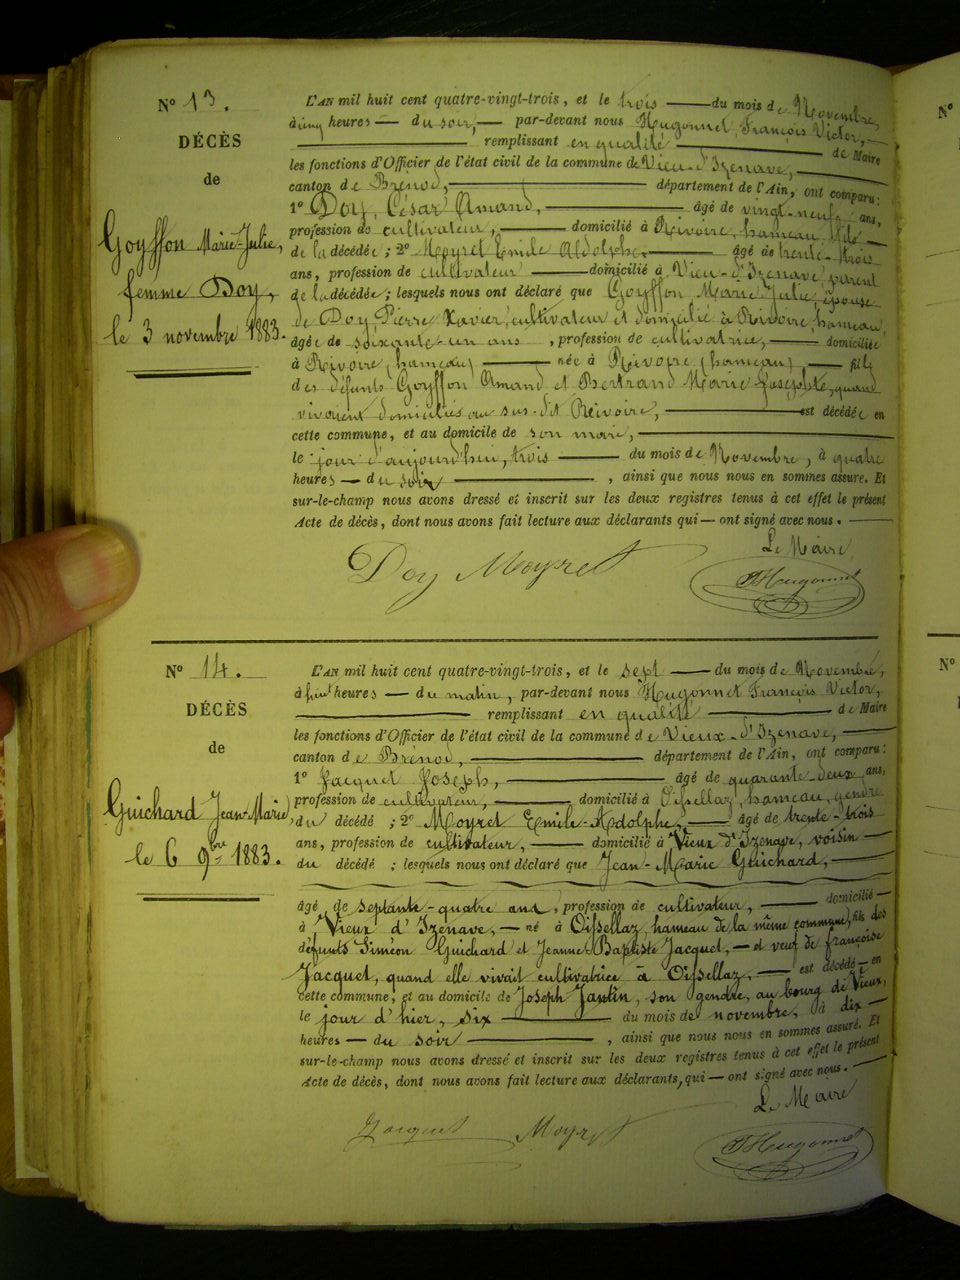 N° 13.
DÉCÈS
de
Goyffon Marie-Julie,
femme Doy,
le 3 novembre 1883.
L'AN mil huit cent quatre-vingt-trois, et le trois du mois de Novembre,
à cinq heures du soir, par-devant nous Hugonnet, François Victor,
remplissant en qualité de Maire
les fonctions d'Officier de l'état civil de la commune de Vieu-d'Izenave,
canton de Brénod, département de l'Ain, ont comparu:
1° Doy, César Amand, âgé de vingt-neuf ans,
profession de cultivateur, domicilié à Rivoire, hameau, fils
de la décédée; 2° Moyret Emile Adolphe âgé de trente-trois
ans, profession de cultivateur domicilié à Vieu-d'Izenave parent
de la décédée; lesquels nous ont déclaré que Goyffon Marie Julie, épouse
de Doy Pierre Xavier, cultivateur et domicilié à Rivoire, hameau,
âgée de soixante-un ans, profession de cultivatrice, domiciliée
à Rivoire (hameau) née à Rivoire (hameau) fille
des défunts Goyffon Amand et Bertrand Marie Josephte, quand
vivaient domiciliés au sus-dit Rivoire, est décédée en
cette commune, et au domicile de son mari,
le jour d'aujourd'hui, trois du mois de Novembre, à quatre
heures du soir, ainsi que nous nous en sommes assuré. Et
sur-le-champ nous avons dressé et inscrit sur les deux registres tenus à cet effet le présent
Acte de décès, dont nous avons fait lecture aux déclarants qui ont signé avec nous.
Le Maire
Doy Moyret
Hugonnet
N° 14.
DÉCÈS
de
Guichard Jean-Marie,
le 6 9bre 1883.
L'AN mil huit cent quatre-vingt-trois, et le sept du mois de Novembre,
à huit heures du matin, par-devant nous Hugonnet François Victor,
remplissant en qualité de Maire
les fonctions d'Officier de l'état civil de la commune de Vieux-d'Izenave,
canton de Brénod, département de l'Ain, ont comparu:
1° Jacquet Joseph, âgé de quarante-deux ans,
profession de cultivateur, domicilié à Oissellaz, hameau, gendre
du décédé; 2° Moyret Emile-Adolphe, âgé de trente-trois
ans, profession de cultivateur, domicilié à Vieux d'Izenave, voisin
du décédé; lesquels nous ont déclaré que Jean-Marie Guichard,
âgé de septante-quatre ans, profession de cultivateur, domicilié
à Vieux d'Izenave, né à Oissellaz, hameau de la même commune, fils des
défunts Siméon Guichard et Jeanne-Baptiste Jacquet, et veuf de françoise
Jacquet, quand elle vivait cultivatrice à Oissellaz, est décédé en
cette commune, et au domicile de Joseph Jantin, son gendre, au bourg de Vieux,
le jour d'hier, six du mois de novembre, à dix
heures du soir, ainsi que nous nous en sommes assuré. Et
sur-le-champ nous avons dressé et inscrit sur les deux registres tenus à cet effet le présent
Acte de décès, dont nous avons fait lecture aux déclarants, qui ont signé avec nous.
Le Maire
Jacquet Moyret
Hugonnet
N°
N°